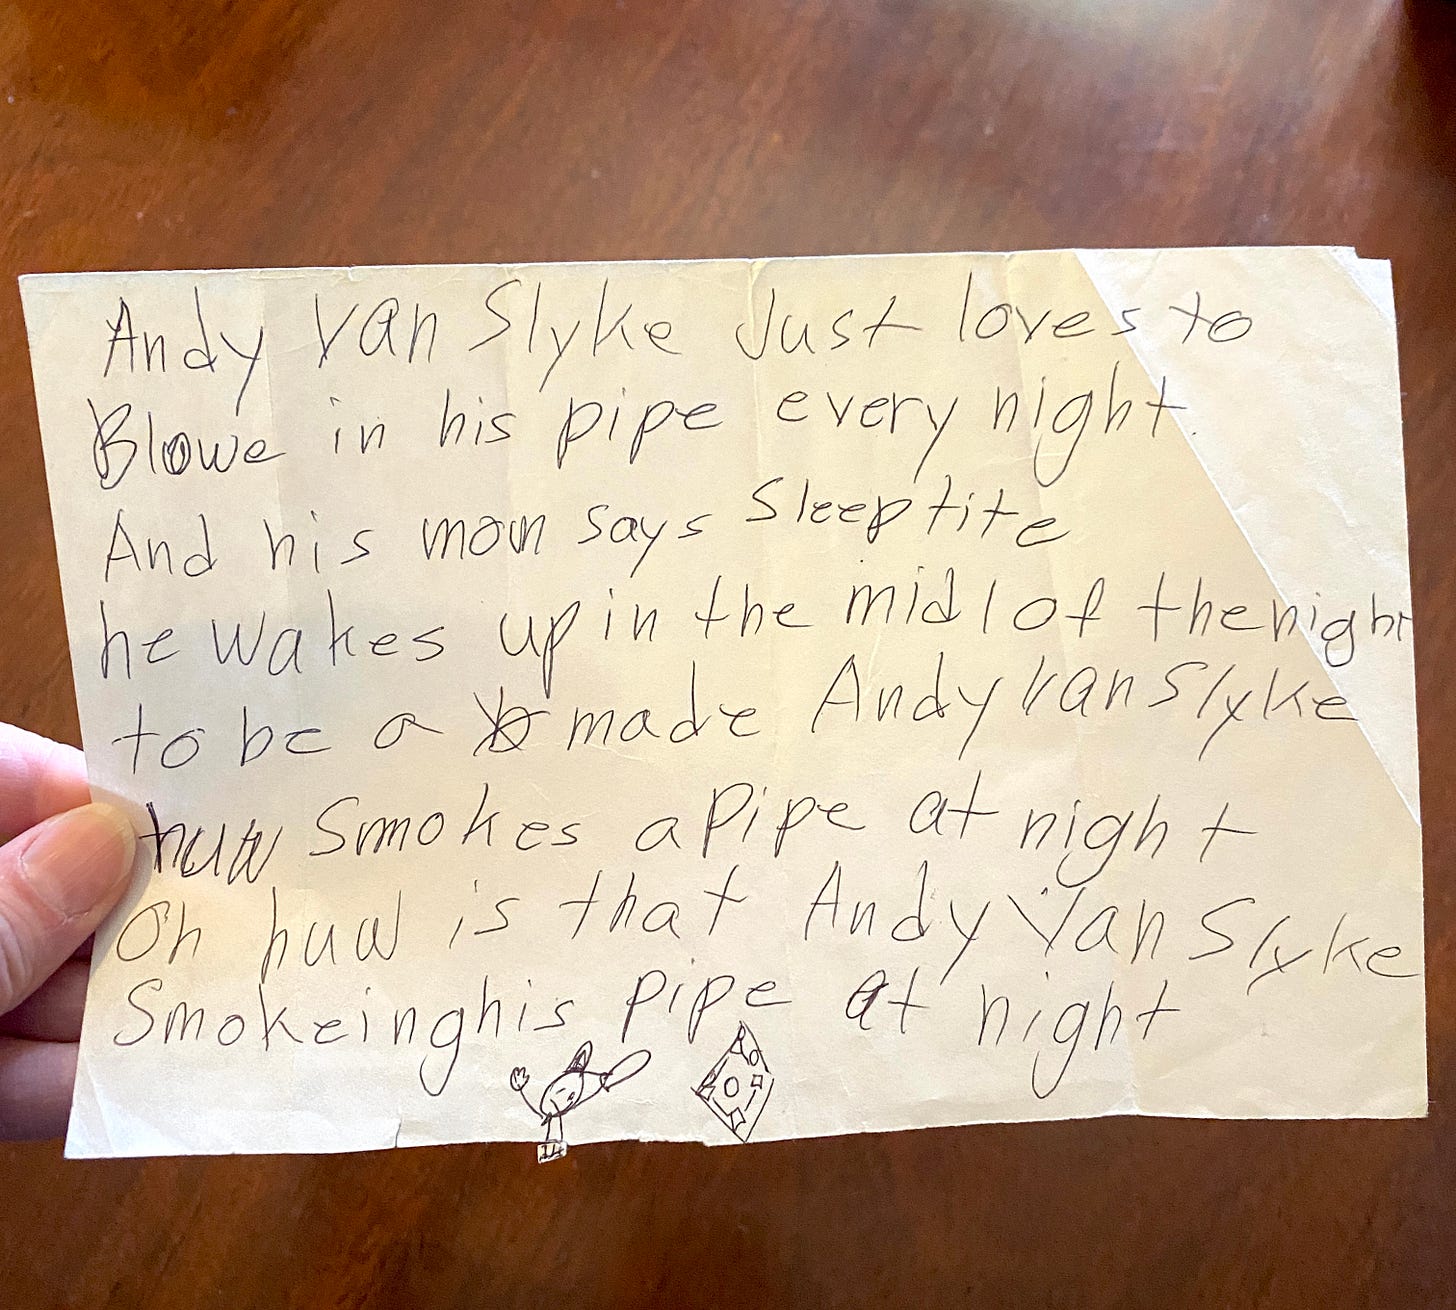 Andy Van Slyke Just loves to
Blowe in his pipe every night.
And his mom says Sleep tite
he wakes up in the midl of the night
to be a made Andy Van Slyke
huw Smokes a pipe at night
Oh huw is that Andy Van Slyke
Smokeing his pipe at night